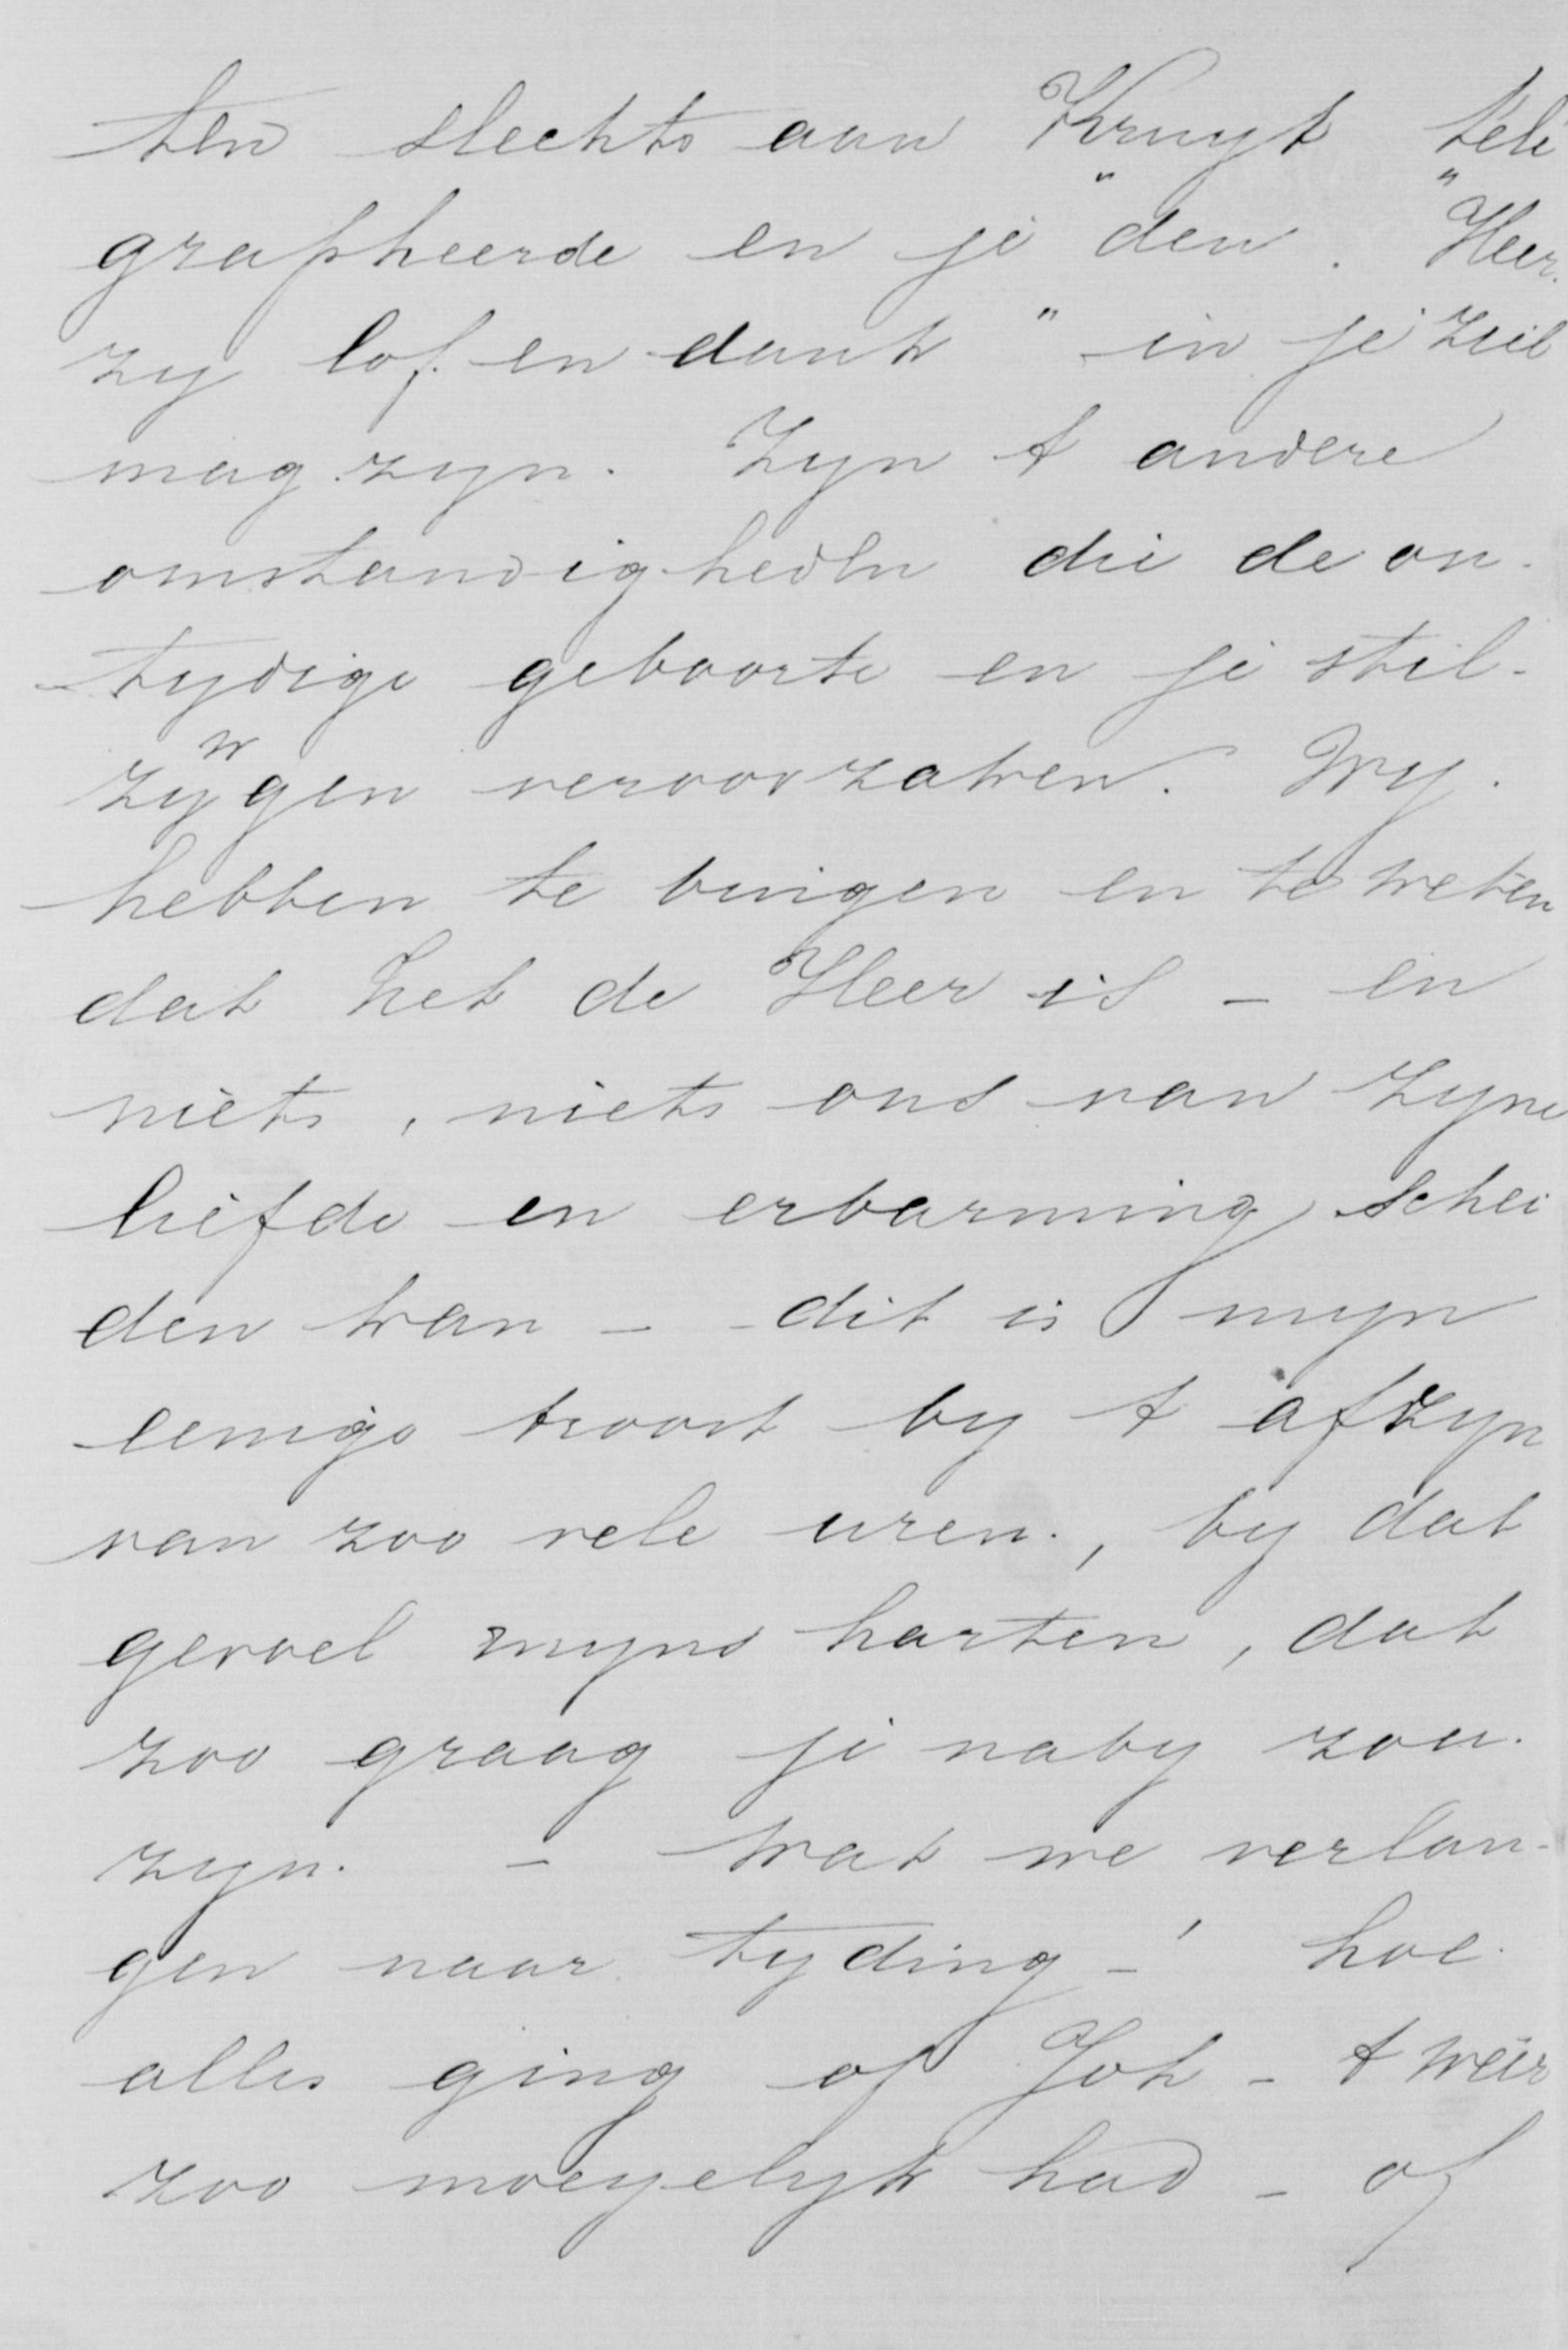 ten slechts aan Kruyt tele
grapheerde en je "den. "Heer.
zy lof. en dank" in je ziel
mag zyn. Zyn t andere
omstandigheden die de on-
tydige geboorte en je stil-
zwygen veroorzaken. Wy.
hebben te buigen en te weten
dat het de Heer is - en
niets, niets ons van zyne
liefde en erbarming schei
den kan - dit is myn
eenige troost by t afzyn
van zoo vele uren., by dat
gevoel myns harten, dat
zoo graag je naby zou.
zyn. - Wat we verlan-
gen naar tyding -! hoe.
alles ging of Joh - t weer
zoo moeyelyk had - of